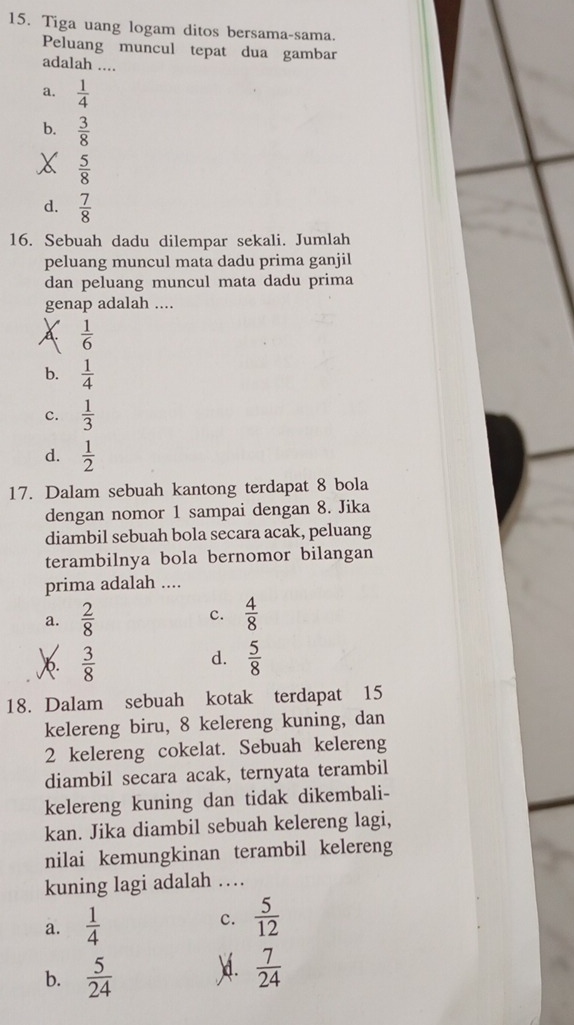 15. Tiga uang logam ditos bersama-sama.
Peluang muncul tepat dua gambar
adalah ....
a. 1/4
b. 3/8
c. 5/8
d. 7/8
16. Sebuah dadu dilempar sekali. Jumlah
peluang muncul mata dadu prima ganjil
dan peluang muncul mata dadu prima
genap adalah ....
a. 1/6
b. 1/4
c. 1/3
d. 1/2
17. Dalam sebuah kantong terdapat 8 bola
dengan nomor 1 sampai dengan 8. Jika
diambil sebuah bola secara acak, peluang
terambilnya bola bernomor bilangan
prima adalah ....
a. 2/8 c. 4/8
b. 3/8 d. 5/8
18. Dalam sebuah kotak terdapat 15
kelereng biru, 8 kelereng kuning, dan
2 kelereng cokelat. Sebuah kelereng
diambil secara acak, ternyata terambil
kelereng kuning dan tidak dikembali-
kan. Jika diambil sebuah kelereng lagi,
nilai kemungkinan terambil kelereng
kuning lagi adalah ....
a. 1/4 c. 5/12
b. 5/24 d. 7/24